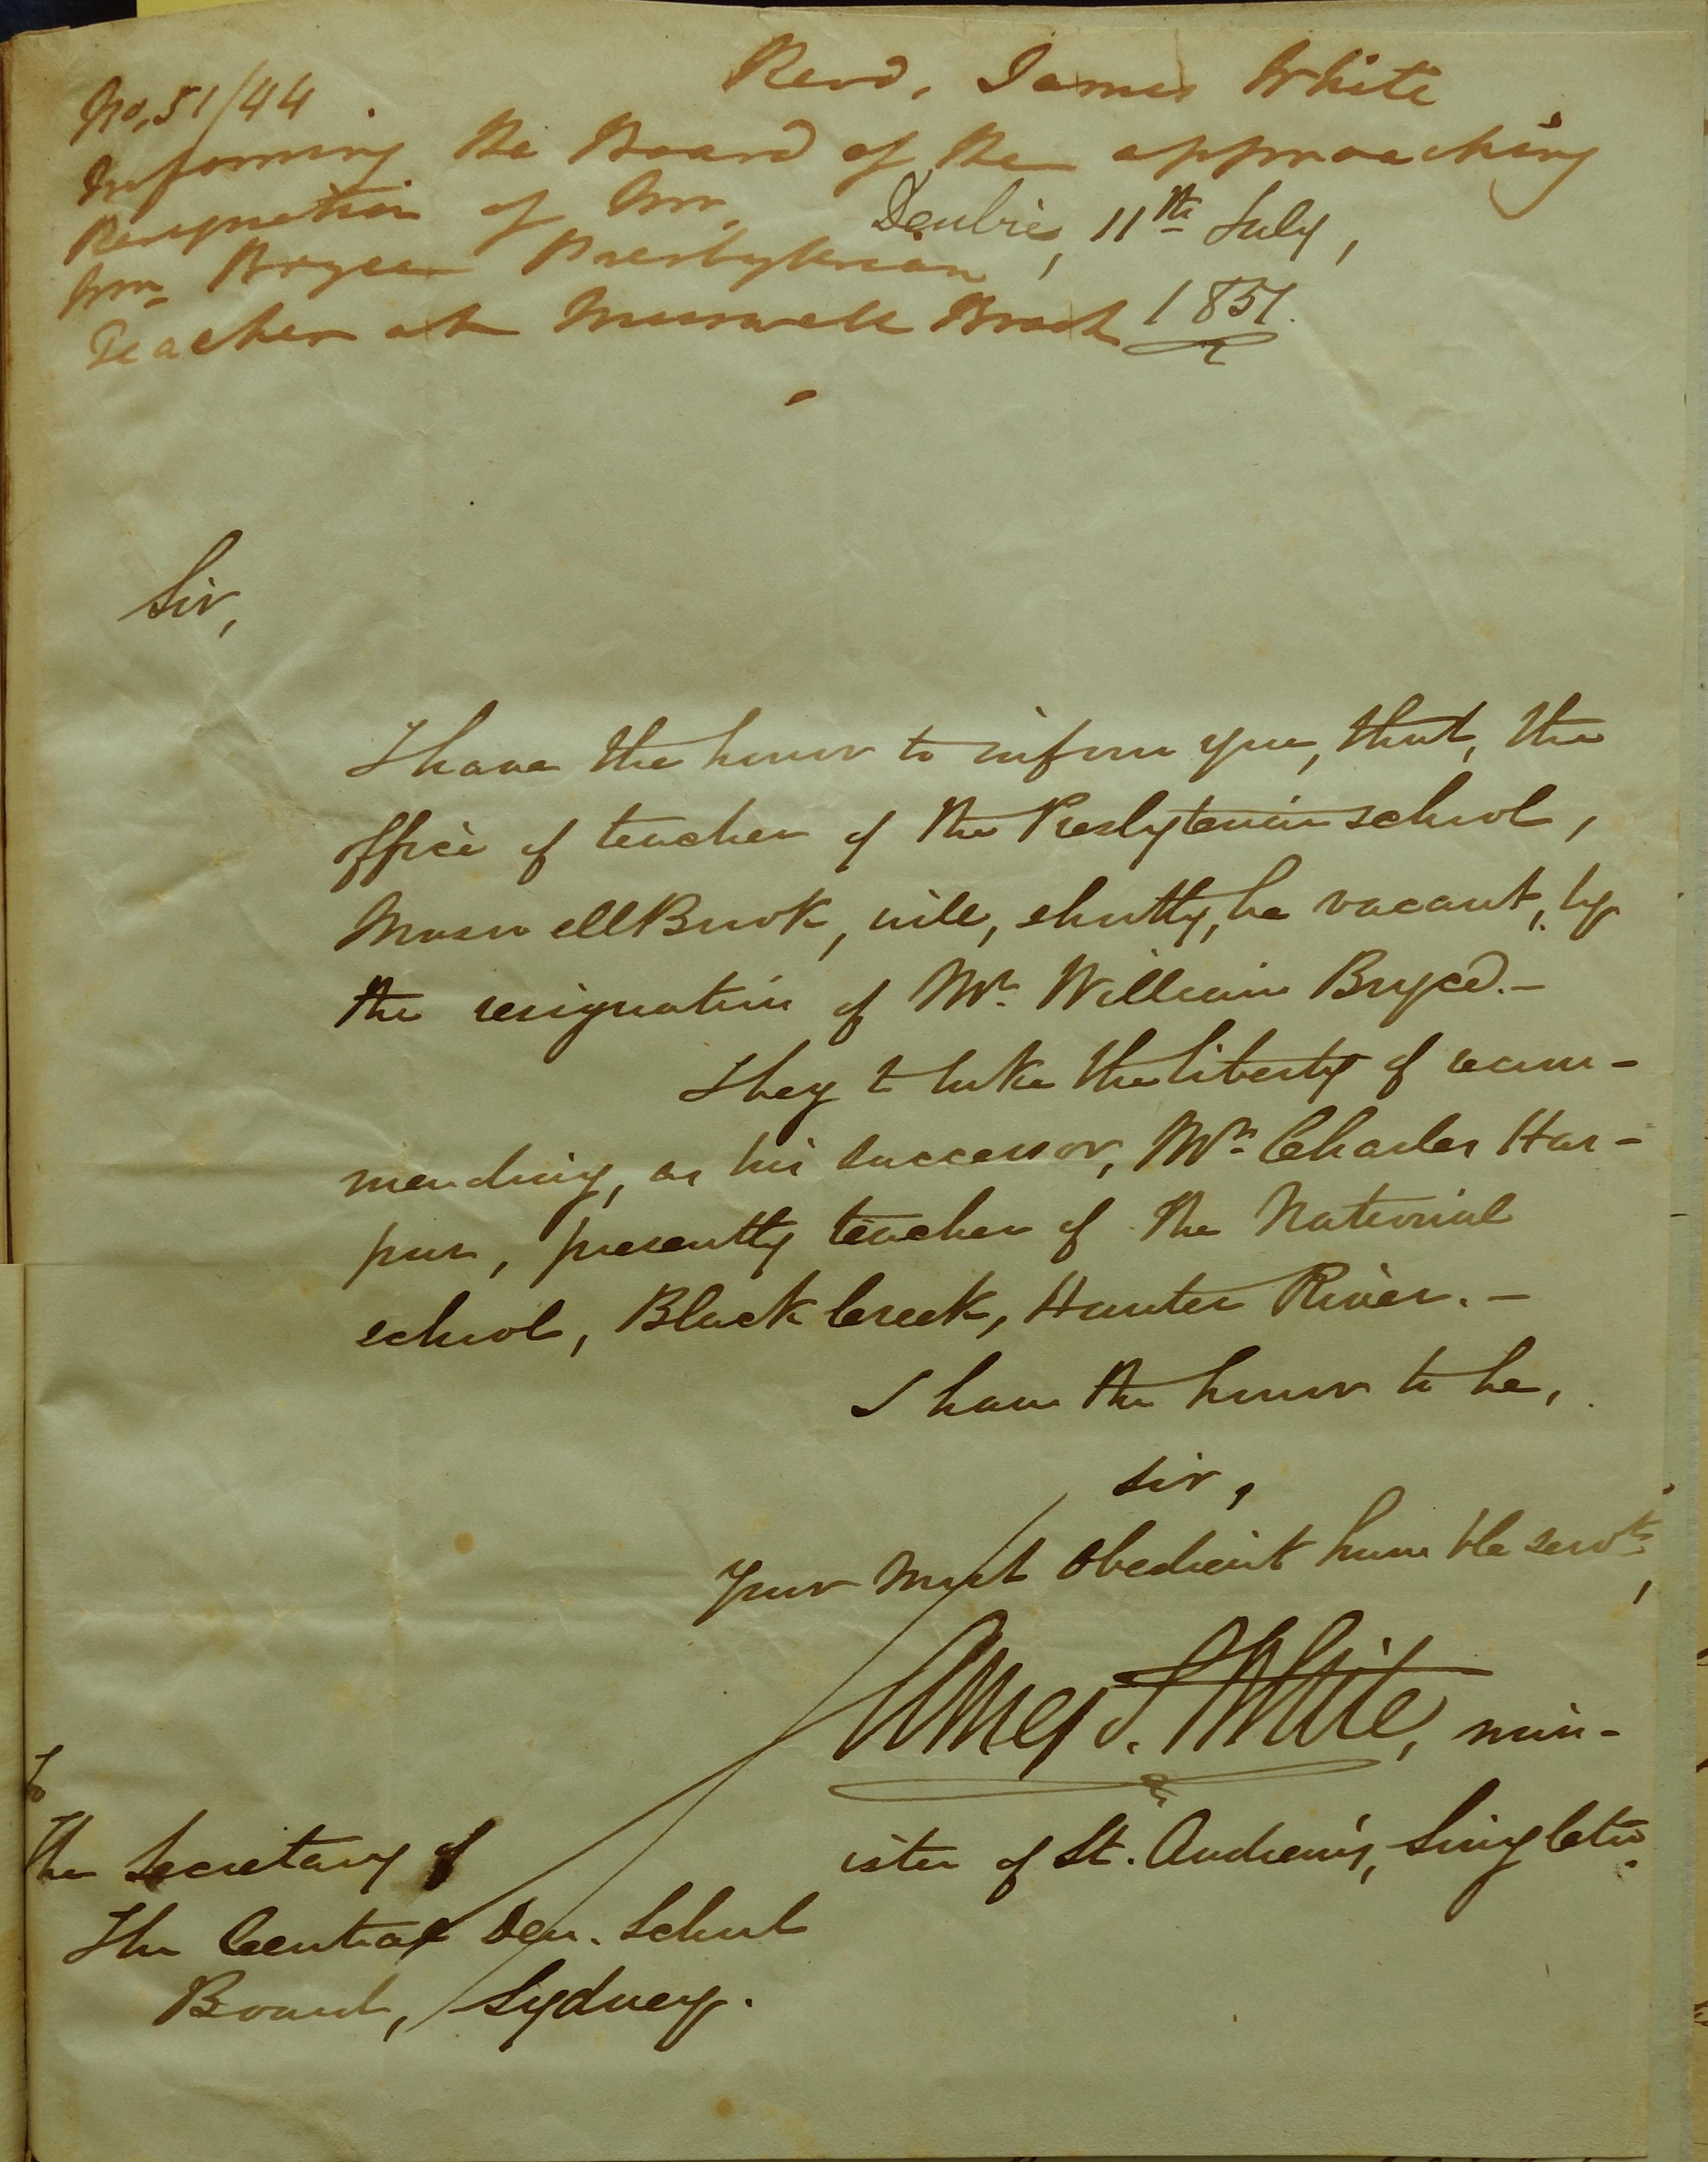 No, 51/44
Revd, James White
Informing the Board of the approaching
Resignation of Mr,
Wm Bryce Presbyterian
Teacher at Muswell Brook
11th July,
1851.
Sir,
I have the honor to inform you, that, the
office of teacher of the Presbyterian school,
Muswellbrook, will, shortly, be vacant, by
the resignation of Mr. William Bryce.-
I beg to take the liberty of recom-
mending, as his successor, Mr. Charles Har-
pur, presently teacher of the National
school, Black Creek, Hunter River.-
I have the honor to be,
Sir,
Your most obedient humble servt,
James S. White, min-
ister of St. Andrew's, Singleton.
To
The Secretary of
The Central Den. School
Board, Sydney.